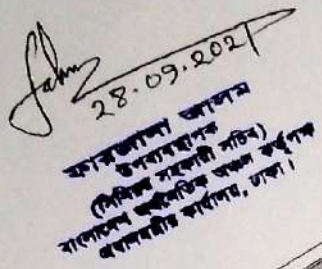 28.09.2021
ফারজানা আলম
উপব্যবস্থাপক
(সিনিয়র সহকারী সচিব)
বাংলাদেশ অর্থনৈতিক অঞ্চল কর্তৃপক্ষ
প্রধানমন্ত্রীর কার্যালয়, ঢাকা।